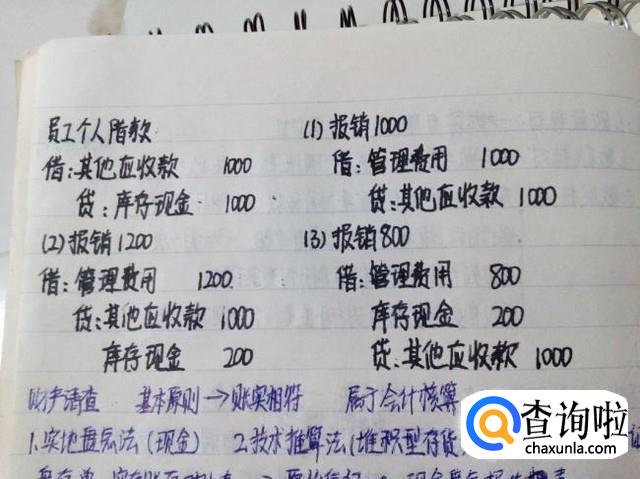 员工个人借款
借:其他应收款 1000
贷:库存现金 1000
(1)报销1000
借:管理费用 1000
贷:其他应收款 1000
(2)报销1200
借:管理费用 1200
贷:其他应收款 1000
库存现金 200
(3)报销800
借:管理费用 800
库存现金 200
贷:其他应收款 1000
财产清查 基本原则→账实相符 属于会计核算
1.实地盘点法(现金) 2.技术推算法(堆积型存货
查询啦
chaxunla.com